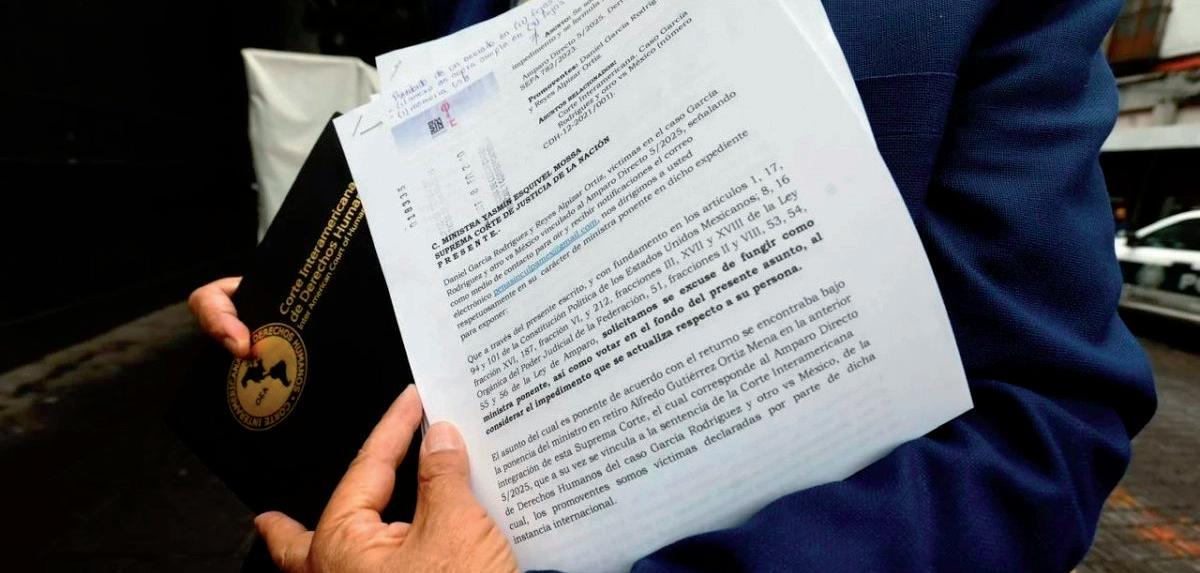 Asunto: Se
impedimento y se formula
Amparo Directo 5/2025. Der
SEFA 782/2023.
Promoventes: Daniel García Rodríg
y Reyes Alpizar Ortiz.
Asuntos relacionados:
Corte Interamericana. Caso García
Rodríguez y otro vs México [número
CDH-12-2021/001].
C. MINISTRA YASMÍN ESQUIVEL MOSSA
SUPREMA CORTE DE JUSTICIA DE LA NACIÓN
P R E S E N T E.-
Daniel García Rodríguez y Reyes Alpizar Ortiz, víctimas en el caso García
Rodríguez y otro vs México vinculado al Amparo Directo 5/2025, señalando
como medio de contacto para oír y recibir notificaciones el correo
electrónico penasinculpamex@gmail.com, nos dirigimos a usted
respetuosamente en su carácter de ministra ponente en dicho expediente
para exponer:
Que a través del presente escrito, y con fundamento en los artículos 1, 17,
94 y 101 de la Constitución Política de los Estados Unidos Mexicanos; 8, 16
fracción XVI, 187, fracción VI, y 212, fracciones III, XVII y XVIII de la Ley
Orgánica del Poder Judicial de la Federación, 51, fracciones II y VIII, 53, 54,
55 y 56 de la Ley de Amparo, solicitamos se excuse de fungir como
ministra ponente, así como votar en el fondo del presente asunto, al
considerar el impedimento que se actualiza respecto a su persona.
El asunto del cual es ponente de acuerdo con el returno se encontraba bajo
la ponencia del ministro en retiro Alfredo Gutiérrez Ortiz Mena en la anterior
integración de esta Suprema Corte, el cual corresponde al Amparo Directo
5/2025, que a su vez se vincula a la sentencia de la Corte Interamericana
de Derechos Humanos del caso García Rodríguez y otro vs México, de la
cual, los promoventes somos víctimas declaradas por parte de dicha
instancia internacional.
018335
Corte Interamericana
de Derechos Huma
Inter American Court of Huma
DERECHOS HUMANOS
CORTE INTERAMERICANA